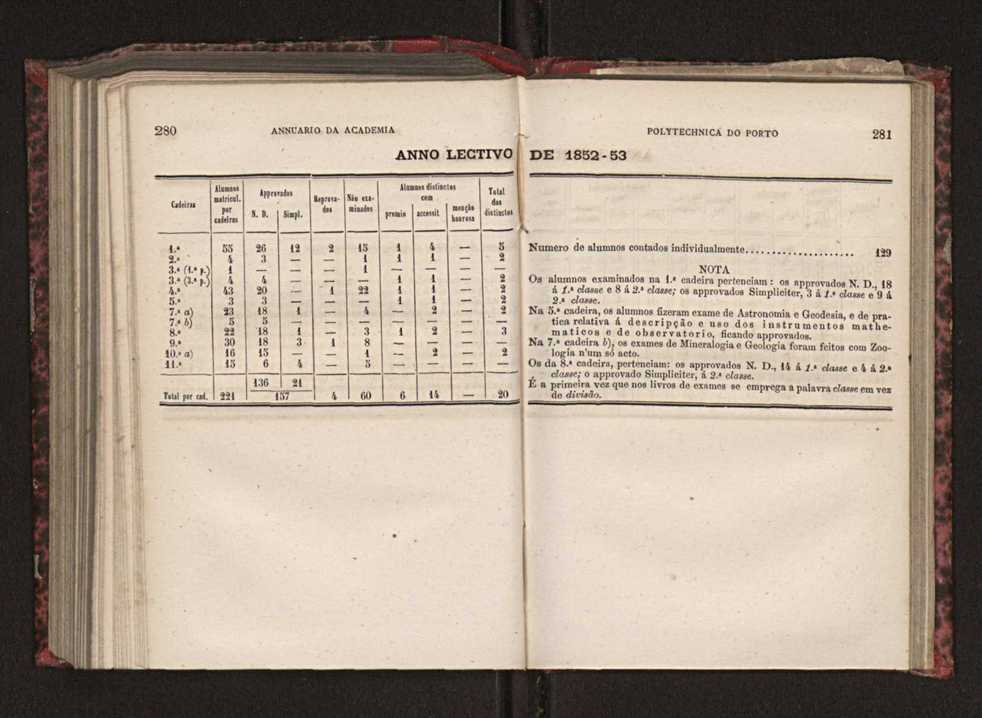 280
ANNUARIO DA ACADEMIA
ANNO LECTIVO
Cadeiras | Alumnos matricul. por cadeiras | Approvados N. D. | Approvados Simpl. | Reprova-dos | Não exa-minados | Alumnos distinctos com premio | Alumnos distinctos com accessit | Alumnos distinctos com menção honrosa | Total dos distinctos
1.ª 55 26 12 2 15 1 4 — 5
2.ª 4 3 — — 1 1 1 — 2
3.ª (1.ª p.) 1 — — — 1 — — — —
3.ª (3.ª p.) 4 4 — — — 1 1 — 2
4.ª 43 20 — 1 22 1 1 — 2
5.ª 3 3 — — — 1 1 — 2
7.ª a) 23 18 1 — 4 — 2 — 2
7.ª b) 5 5 — — — — — — —
8.ª 22 18 1 — 3 1 2 — 3
9.ª 30 18 3 1 8 — — — —
10.ª a) 16 15 — — 1 — 2 — 2
11.ª 15 6 4 — 5 — — — —
136 21
Total por cad. 221 157 4 60 6 14 — 20
POLYTECHNICA DO PORTO
281
DE 1852-53
Numero de alumnos contados individualmente.................. 129
NOTA
Os alumnos examinados na 1.ª cadeira pertenciam: os approvados N. D., 18
á 1.ª classe e 8 á 2.ª classe; os approvados Simpliciter, 3 á 1.ª classe e 9 á
2.ª classe.
Na 5.ª cadeira, os alumnos fizeram exame de Astronomia e Geodesia, e de pra-
tica relativa á descripção e uso dos instrumentos mathe-
maticos e de observatorio, ficando approvados.
Na 7.ª cadeira b), os exames de Mineralogia e Geologia foram feitos com Zoo-
logia n'um só acto.
Os da 8.ª cadeira, pertenciam: os approvados N. D., 14 á 1.ª classe e 4 á 2.ª
classe; o approvado Simpliciter, á 2.ª classe.
É a primeira vez que nos livros de exames se emprega a palavra classe em vez
de divisão.